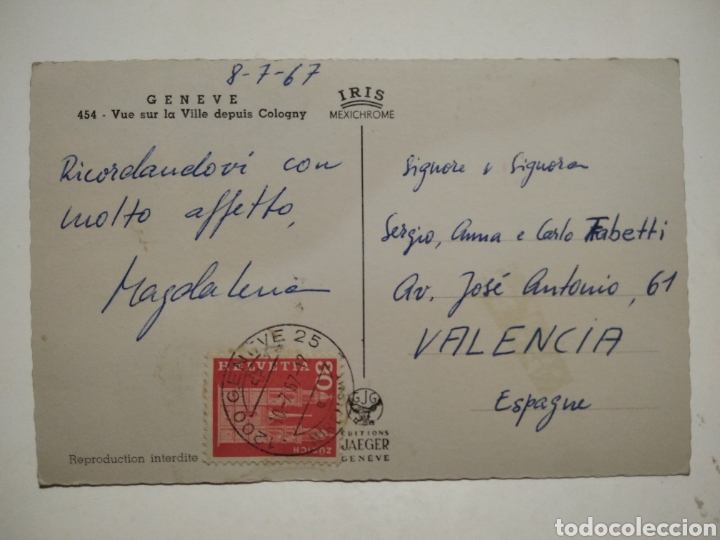 8-7-67
GENEVE
454 - Vue sur la Ville depuis Cologny
IRIS
MEXICHROME
Ricordandovi con
molto affetto,
Magdalena
Signore e Signora
Sergio, Anna e Carlo Fabetti
Av. José Antonio, 61
VALENCIA
Espagne
1200 GENÈVE 25
HELVETIA
30
ZÜRICH
GJG
EDITIONS
JAEGER
GENÈVE
Reproduction interdite
todocoleccion